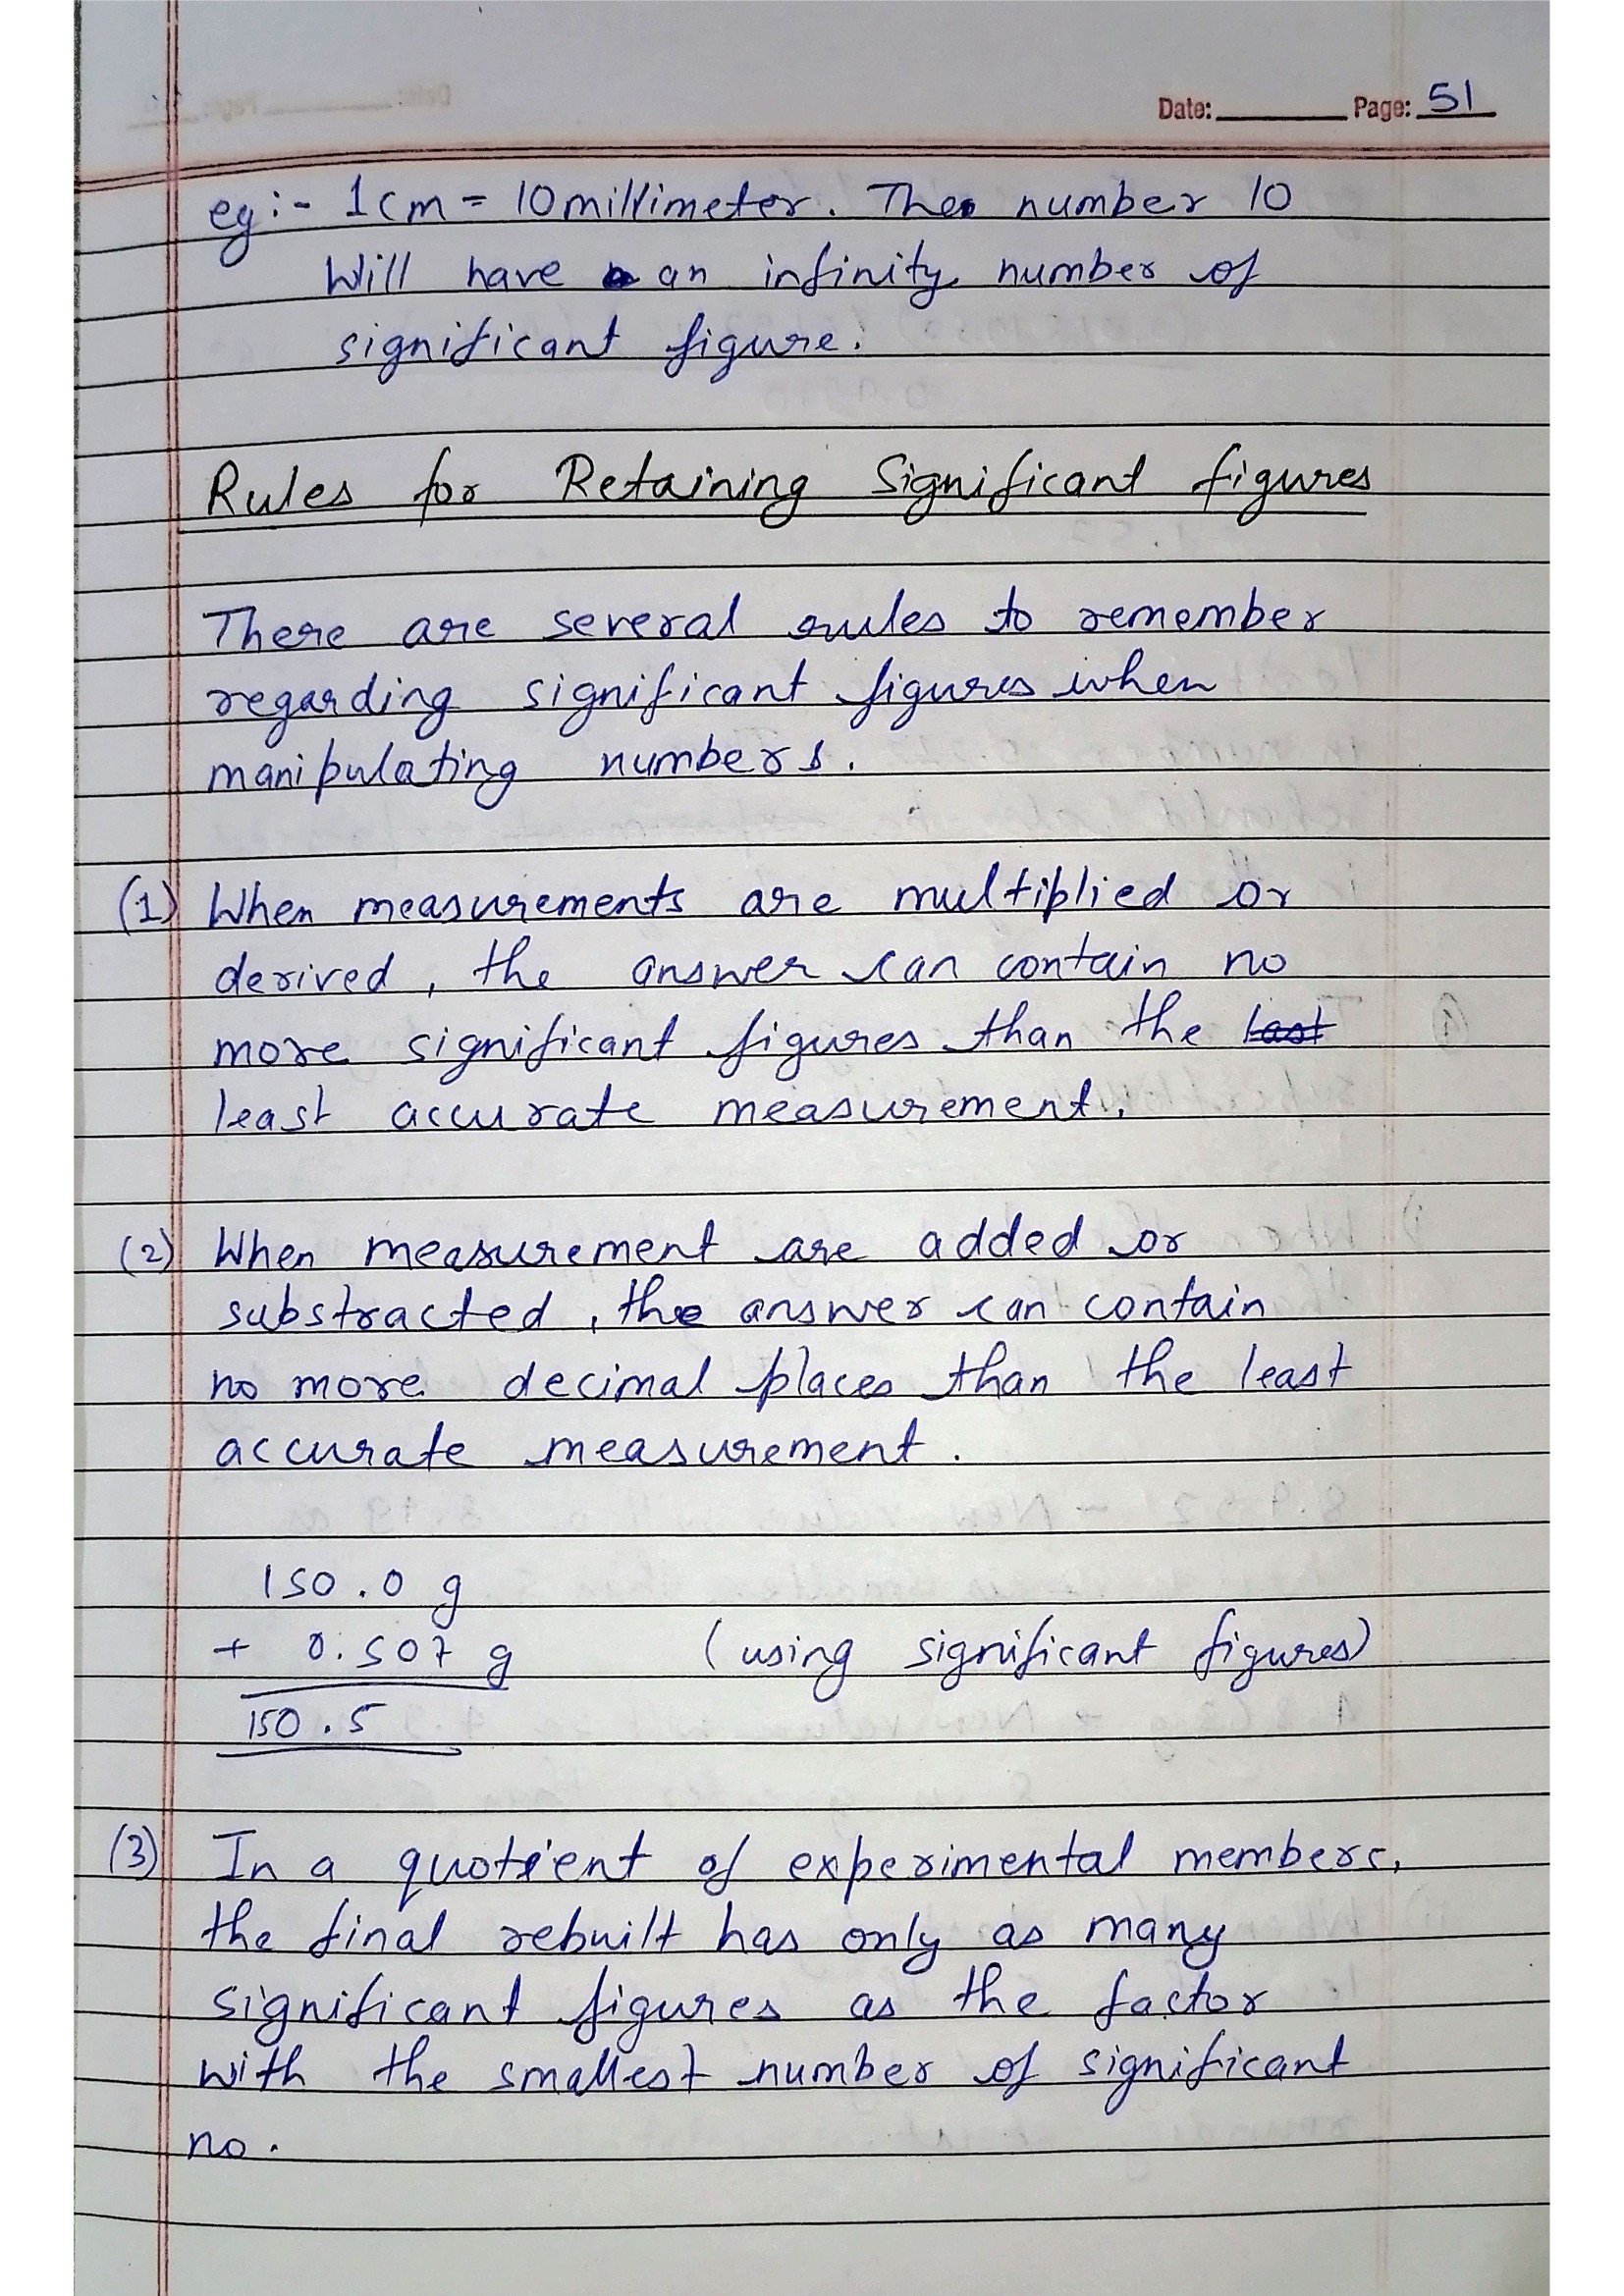 Date: Page: 51
eg:- 1cm = 10 millimeter. The number 10
Will have an infinity number of
significant figure.
Rules for Retaining Significant figures
There are several rules to remember
regarding significant figures when
manipulating numbers.
(1) When measurements are multiplied or
derived, the answer can contain no
more significant figures than the last
least accurate measurement.
(2) When measurement are added or
substracted, the answer can contain
no more decimal places than the least
accurate measurement.
150.0 g
+ 0.507 g (using significant figures)
150.5
(3) In a quotient of experimental members,
the final rebuilt has only as many
significant figures as the factor
with the smallest number of significant
no.